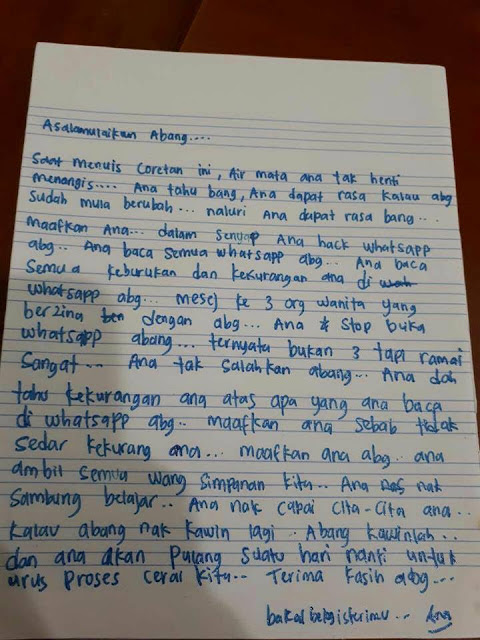 Asalamulaikum Abang....
Saat menulis coretan ini, Air mata ana tak henti
menangis.... Ana tahu bang, Ana dapat rasa kalau abg
sudah mula berubah... naluri Ana dapat rasa bang...
maafkan Ana... dalam senyap Ana hack whatsapp
abg.. Ana baca semua whatsapp abg.. Ana baca
semua keburukan dan kekurangan ana di
whatsapp abg... mesej ke 3 org wanita yang
berzina dengan abg... Ana stop buka
whatsapp abang.... ternyata bukan 3 tapi ramai
sangat... Ana tak salahkan abang... Ana dah
tahu kekurangan ana atas apa yang ana baca
di whatsapp abg.. maafkan ana sebab tidak
sedar kekurang ana... maafkan ana abg.. ana
ambil semua wang simpanan kita.. Ana nak
sambung belajar.. Ana nak capai cita-cita ana..
kalau abang nak kawin lagi.. Abang kawinlah..
dan ana akan pulang suatu hari nanti untuk
urus proses cerai kita... Terima kasih abg...
bakal bekas isterimu... Ana